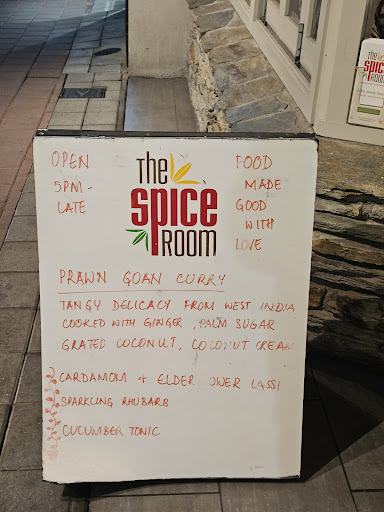 OPEN
5PM -
LATE
The
spice
ROOM
FOOD
MADE
GOOD
WITH
LOVE
PRAWN GOAN CURRY
TANGY DELICACY FROM WEST INDIA
COOKED WITH GINGER, PALM SUGAR
GRATED COCONUT, COCONUT CREAM
CARDAMOM + ELDER OWER LASSI
SPARKLING RHUBARB
CUCUMBER TONIC
The
spice
ROOM